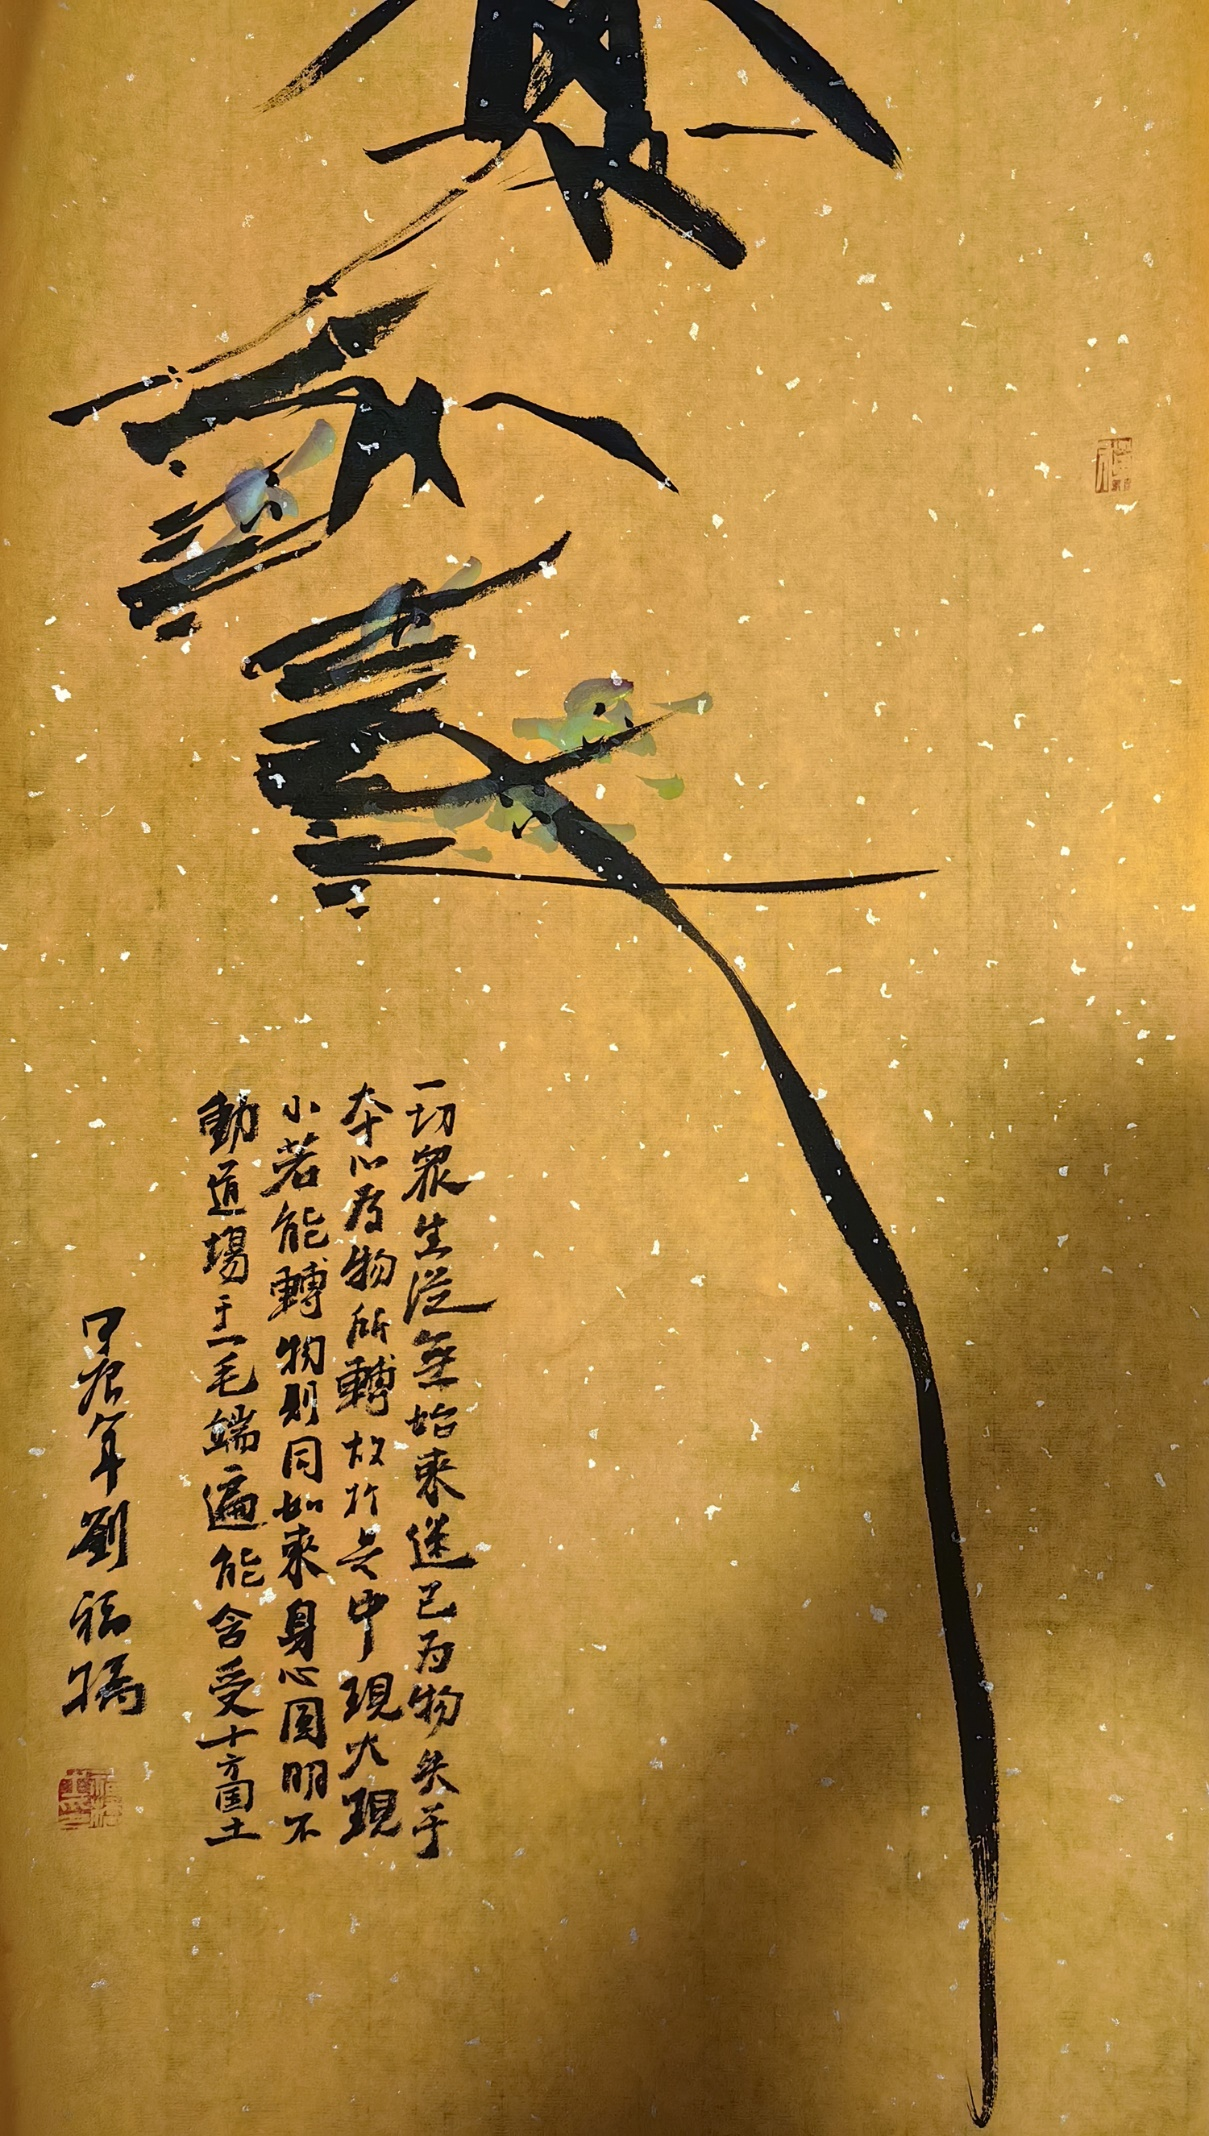 一切眾生從無始來迷己为物失于
本心为物所轉故於是中現大現
小若能轉物則同如來身心圓明不
動道場于一毛端遍能含受十方国土
甲辰年劉福